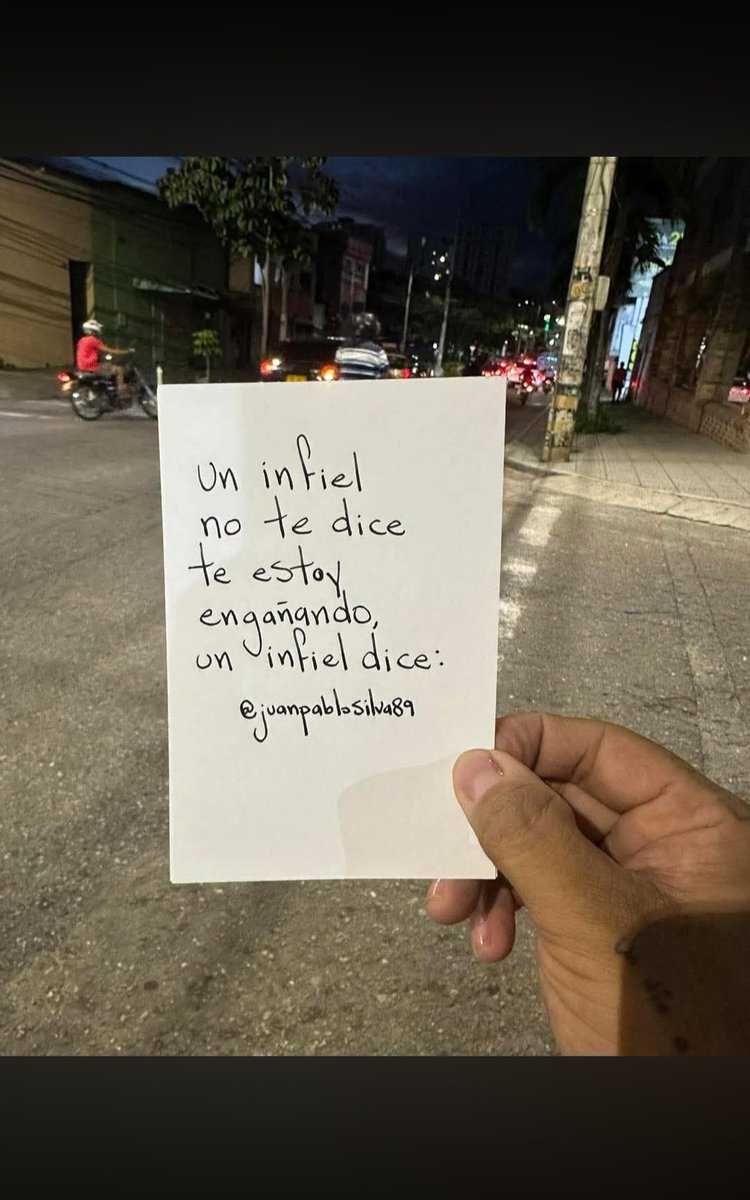 un infiel
no te dice
te estoy
engañando,
un infiel dice:
@juanpablosilva89